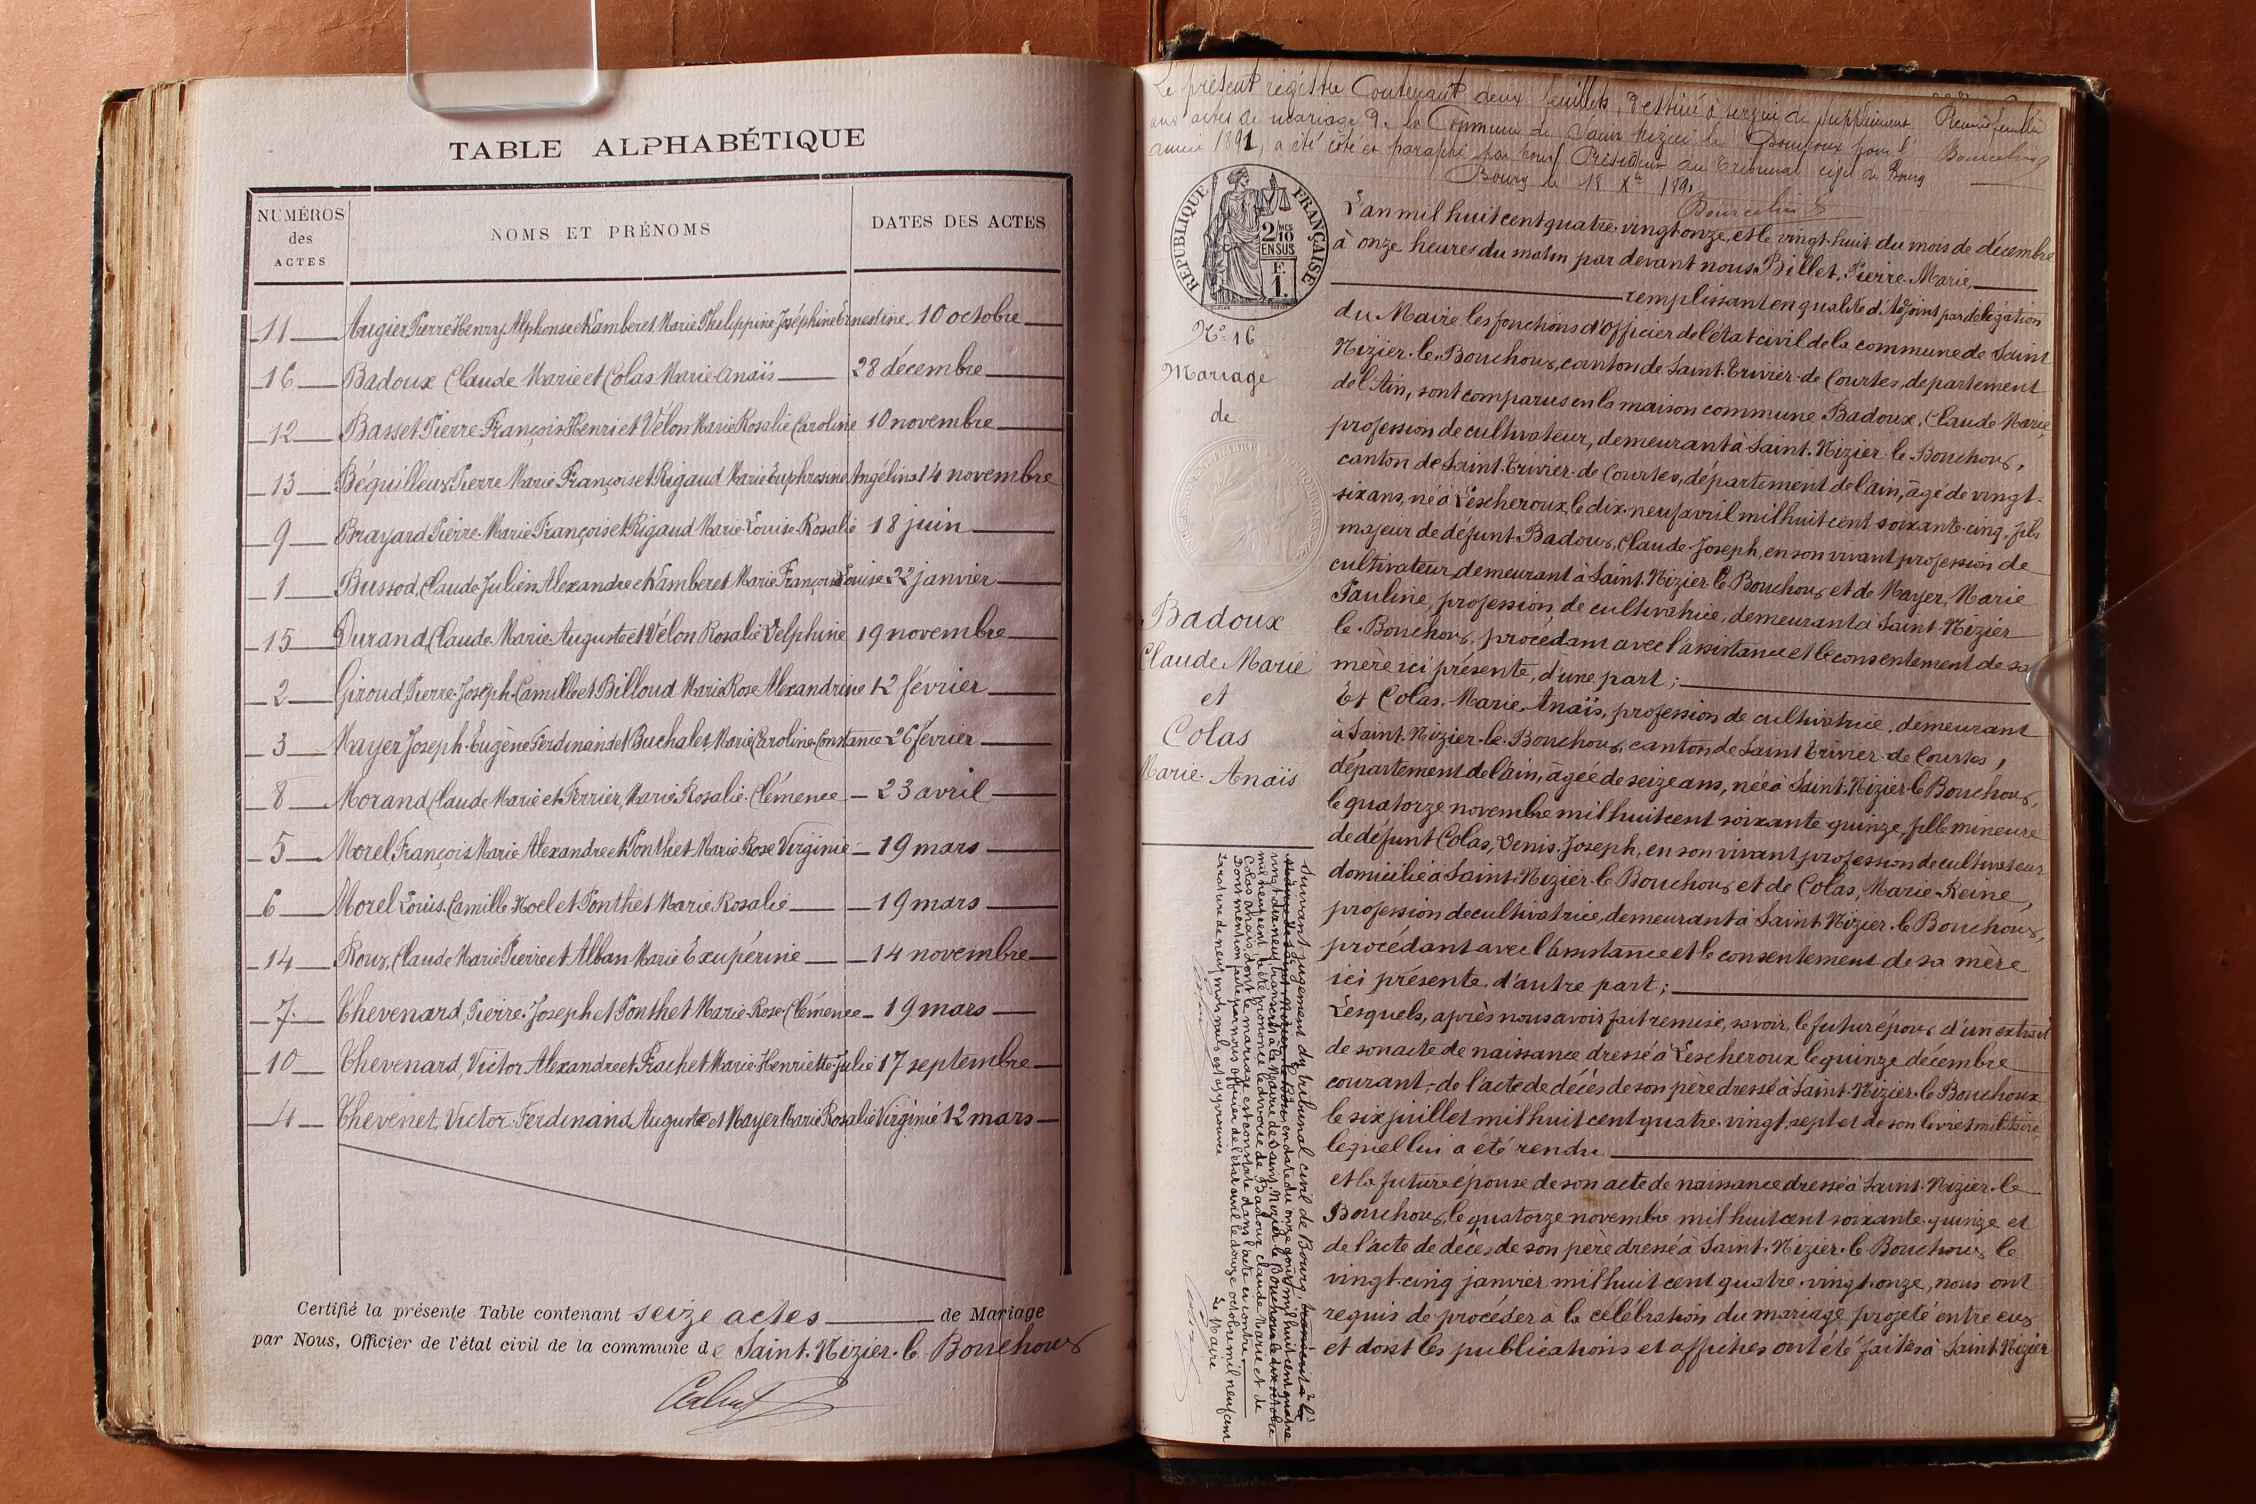 TABLE ALPHABÉTIQUE
NUMÉROS des ACTES
NOMS ET PRÉNOMS
DATES DES ACTES
11 Augier Pierre Henry Alphonse et Lamberet Marie Philippine Joséphine Ernestine 10 octobre
16 Badoux Claude Marie et Colas Marie Anaïs 28 décembre
12 Basset Pierre François Henri et Vélon Marie Rosalie Caroline 10 novembre
13 Béguilleux Pierre Marie François et Rigaud Marie Euphrosine Angélina 14 novembre
9 Brayard Pierre Marie François et Rigaud Marie Louise Rosalie 18 juin
1 Bussod, Claude Julien Alexandre et Lamberet Marie Françoise Louise 22 janvier
15 Durand, Claude Marie Auguste et Vélon Rosalie Delphine 19 novembre
2 Giroud, Pierre Joseph Camille et Billoud Marie Rose Alexandrine 12 février
3 Mayer Joseph Eugène Ferdinand et Buchalet Marie Caroline Constance 26 février
8 Morand Claude Marie et Ferrier, Marie Rosalie Clémence 23 avril
5 Morel François Marie Alexandre et Ponthet Marie Rose Virginie 19 mars
6 Morel Louis Camille Noel et Ponthet Marie Rosalie 19 mars
14 Roux, Claude Marie Pierre et Alban Marie Exupérine 14 novembre
7 Thevenard, Pierre Joseph et Ponthet Marie Rose Clémence 19 mars
10 Thevenard, Victor Alexandre et Rachet Marie Henriette Julie 17 septembre
4 Thevenet, Victor Ferdinand Auguste et Mayer Marie Rosalie Virginie 12 mars
Certifié la présente Table contenant seize actes de Mariage
par Nous, Officier de l'état civil de la commune de Saint-Nizier-le-Bouchoux
Le présent registre contenant deux feuillets, destiné à servir de supplément
aux actes de mariage de la Commune de Saint Nizier le Bouchoux pour l'
année 1891, a été coté et paraphé par nous Président du Tribunal civil de Bourg
Bourg le 18 Xbre 1891
Bourcelin
Premier feuillet
Bourcelin
RÉPUBLIQUE FRANÇAISE
2/10
EN SUS
F.
1.
No 16
Mariage
de
Badoux
Claude Marie
et
Colas
Marie-Anaïs
L'an mil huit cent quatre-vingt onze, et le vingt-huit du mois de décembre
à onze heures du matin par devant nous Billet, Pierre-Marie,
remplissant en qualité d'Adjoint par délégation
du Maire les fonctions d'Officier de l'état civil de la commune de Saint
Nizier-le-Bouchoux, canton de Saint-Trivier-de-Courtes, département
de l'Ain, sont comparus en la maison commune Badoux, Claude Marie,
profession de cultivateur, demeurant à Saint-Nizier-le-Bouchoux,
canton de Saint-Trivier-de-Courtes, département de l'ain, âgé de vingt-
six ans, né à Lescheroux, le dix-neuf avril mil huit cent soixante-cinq, fils
majeur de défunt Badoux, Claude-Joseph, en son vivant profession de
cultivateur, demeurant à Saint-Nizier-le-Bouchoux et de Mayer, Marie
Pauline, profession de cultivatrice, demeurant à Saint-Nizier
le-Bouchoux, procédant avec l'assistance et le consentement de sa
mère ici présente, d'une part;
Et Colas, Marie-Anaïs, profession de cultivatrice, demeurant
à Saint-Nizier-le-Bouchoux, canton de Saint-Trivier-de-Courtes,
département de l'ain, âgée de seize ans, née à Saint-Nizier-le-Bouchoux,
le quatorze novembre mil huit cent soixante-quinze, fille mineure
de défunt Colas, Denis-Joseph, en son vivant profession de cultivateur
domicilié à Saint-Nizier-le-Bouchoux et de Colas, Marie-Reine,
profession de cultivatrice, demeurant à Saint-Nizier-le-Bouchoux,
procédant avec l'assistance et le consentement de sa mère
ici présente, d'autre part;
Lesquels, après nous avoir fait remise, savoir, le futur époux d'un extrait
de son acte de naissance dressé à Lescheroux le quinze décembre
courant, de l'acte de décès de son père dressé à Saint-Nizier-le-Bouchoux
le six juillet mil huit cent quatre-vingt-sept et de son livret militaire,
lequel lui a été rendu
et la future épouse de son acte de naissance dressé à Saint-Nizier-le
Bouchoux, le quatorze novembre mil huit cent soixante-quinze et
de l'acte de décès de son père dressé à Saint-Nizier-le-Bouchoux le
vingt-cinq janvier mil huit cent quatre-vingt-onze, nous ont
requis de procéder à la célébration du mariage projeté entre eux
et dont les publications et affiches ont été faites à Saint-Nizier
Suivant jugement du tribunal civil de Bourg,
en date du onze août mil huit cent quatre
vingt dix neuf, transcrit à la Mairie de Saint Nizier le Bouchoux le dix octobre
mil neuf cent, a été prononcé le divorce de Badoux Claude Marie et de
Colas Anaïs, dont le mariage est constaté dans l'acte ci contre
Dont mention faite par nous officier de l'état civil le douze octobre mil neuf cent
Le Maire